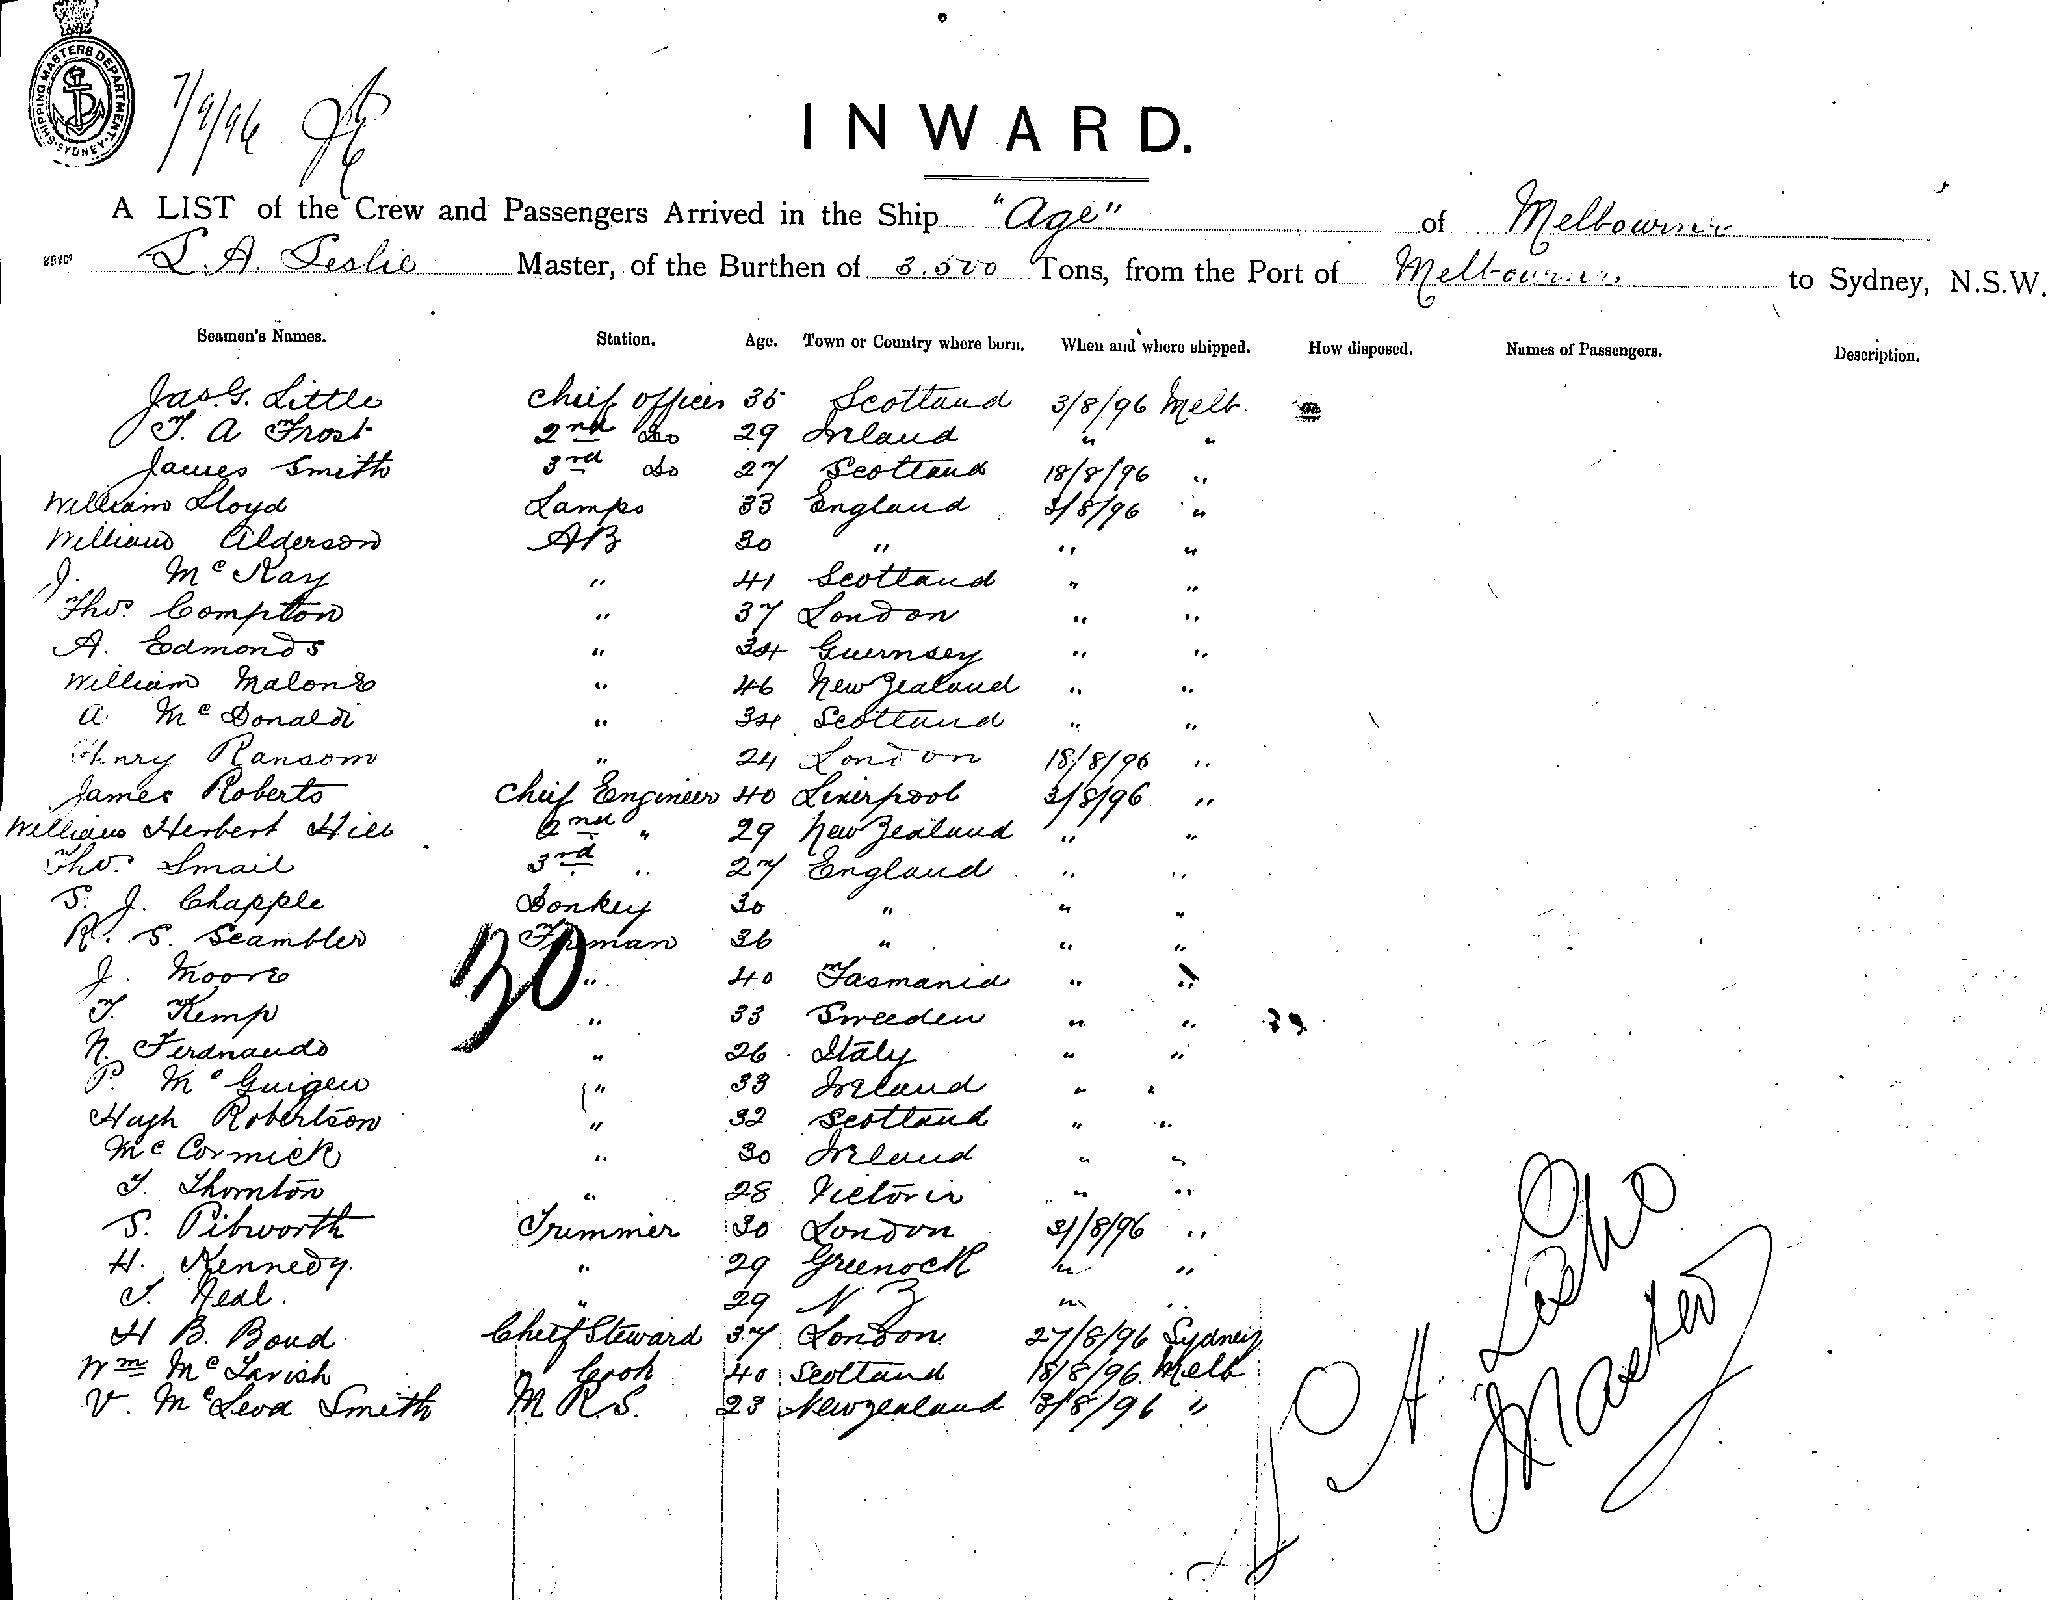 SHIPPING MASTERS DEPARTMENT SYDNEY
7/9/96
INWARD.
A LIST of the Crew and Passengers Arrived in the Ship "Age" of Melbourne
Leslie Master, of the Burthen of 3.500 Tons, from the Port of Melbourne to Sydney, N.S.W.
Seamen's Names. Station. Age. Town or Country where born. When and where shipped. How disposed. Names of Passengers. Description.
Jas. G. Little Chief officer 35 Scotland 3/8/96 Melb.
T. A Frost 2nd do 29 Ireland " "
James Smith 3rd do 27 Scotland 18/8/96 "
William Lloyd Lamps 33 England 3/8/96 "
William Alderson AB 30 " " "
J. McKay " 41 Scotland " "
Thos. Compton " 37 London " "
A. Edmonds " 34 Guernsey " "
William Malone " 46 New Zealand " "
A McDonald " 34 Scotland " "
Henry Ransom " 24 London 18/8/96 "
James Roberts Chief Engineer 40 Liverpool 3/8/96 "
William Herbert Hill 2nd " 29 New Zealand " "
Thos. Smail 3rd " 27 England " "
S. J. Chapple Donkey 30 " " "
R. S. Scambler Fireman 36 " " "
30
J. Moore " 40 Tasmania " "
T. Kemp " 33 Sweeden " "
N. Ferdnando " 26 Italy " "
P. McGuigen " 33 Ireland " "
Hugh Robertson " 32 Scotland " "
McCormick " 30 Ireland " "
T. Thornton " 28 Victoria " "
S. Pibworth Trimmer 30 London 31/8/96 "
H. Kennedy " 29 Greenock " "
T. Neal. " 29 N Z " "
H B. Bond Chief Steward 37 London 27/8/96 Sydney
Wm McTavish Cook 40 Scotland 18/8/96 Melb
V. McLeod Smith M R.S. 23 New Zealand 3/8/96 "
A Leslie
Master